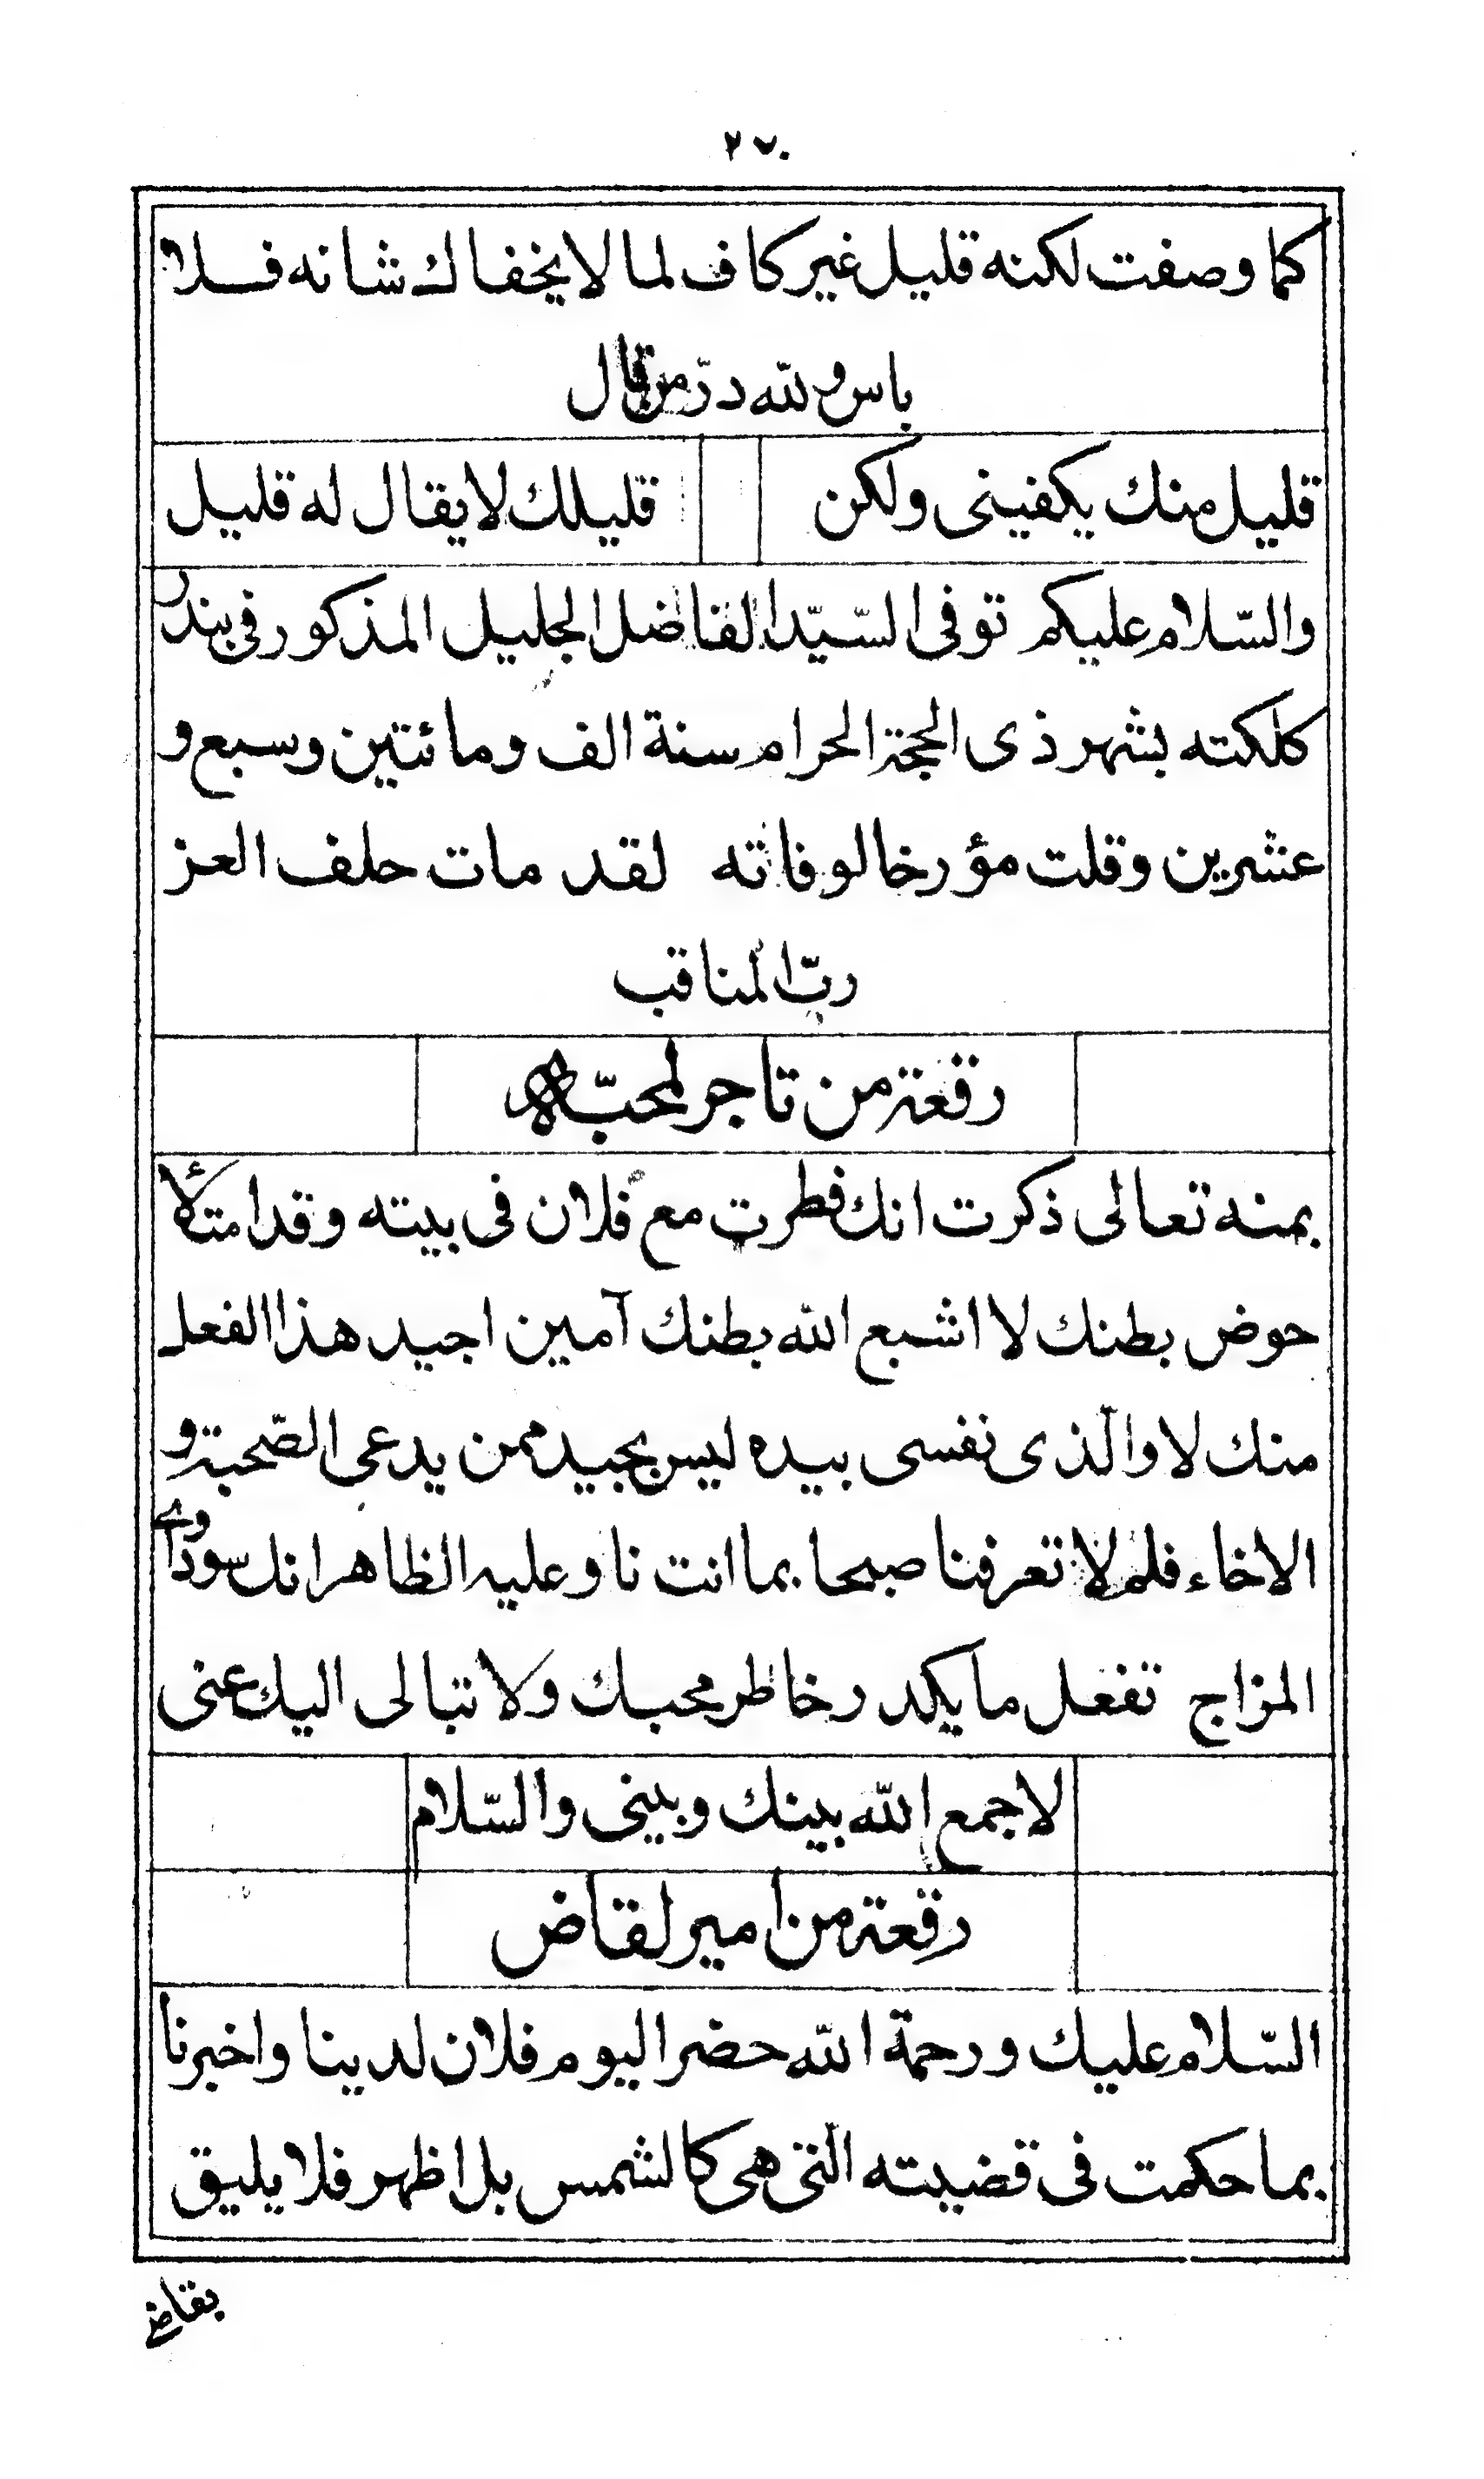 ٢٧٠
كما وصفت لكنه قليل غير كاف لما لا يخفاك شانه فلا
باس ولله درّ من قال
قليل منك يكفينى ولكن قليلك لا يقال له قليل
والسّلام عليكم توفى السّيّد الفاضل الجليل المذكور فى بندر
كلكته بشهر ذى الحجة الحرام سنة الف ومائتين وسبع و
عشرين وقلت مؤرخا لوفاته لقد مات حلف العز
ربّ المناقب
رقعة من تاجر لمحبّ
بمنه تعالى ذكرت انك فطرت مع فلان فى بيته وقد امتلأ
حوض بطنك لا اشبع الله بطنك آمين اجيد هذا الفعل
منك لا والّذى نفسى بيده ليس بجيد ممن يدعى الصّحبة و
الاخاء فلم لا تعرفنا صبحا بما انت ناو عليه الظاهر انك سوداوے
المزاج تفعل ما يكدر خاطر محبك ولا تبالى اليك عنى
لا جمع الله بينك وبينى والسّلام
رقعة من امير لقاض
السّلام عليك ورحمة الله حضر اليوم فلان لدينا واخبرنا
بما حكمت فى قضيته الّتى هى كالشمس بل اظهر فلا يليق
بقاض